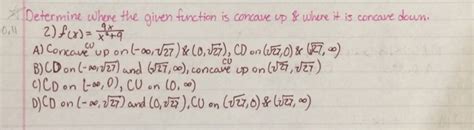 Determine where the given function is concave up & where it is concave down.
2) f(x) = 9x/x²+9
A) Concave up on (-∞, √27) & (0, √27), CD on (√27, 0) & (√27, ∞)
CU
B) CD on (-∞, √27) and (√27, ∞), concave up on (√27, √27)
CU
C) CD on (-∞, 0), CU on (0, ∞)
D) CD on (-∞, √27) and (0, √27), CU on (√27, 0) & (√27, ∞)